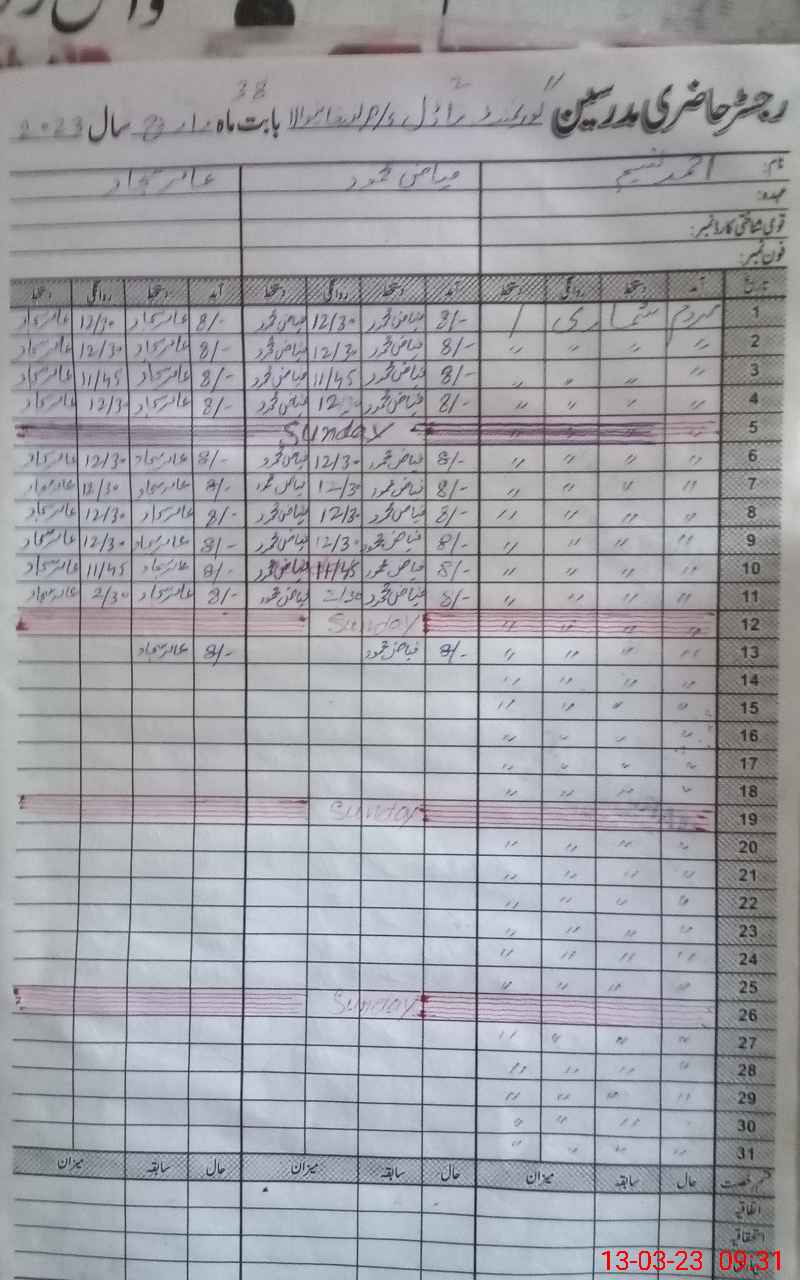 رجسٹر حاضری مدرسین گورنمنٹ ماڈل بابت ماہ مارچ سال 2023
38
نام: احمد نسیم فیاض محمود عامر سجاد
عہدہ:
قومی شناختی کارڈ نمبر:
فون نمبر:
تاریخ آمد دستخط روانگی دستخط آمد دستخط روانگی دستخط آمد دستخط روانگی دستخط
1 مردم شماری / 8/- فیاض محمود 12/30 فیاض محمود 8/- عامر سجاد 12/30 عامر سجاد
2 〃 〃 〃 〃 8/- فیاض محمود 12/30 فیاض محمود 8/- عامر سجاد 12/30 عامر سجاد
3 〃 〃 〃 8/- فیاض محمود 11/45 فیاض محمود 8/- عامر سجاد 11/45 عامر سجاد
4 〃 〃 〃 〃 8/- فیاض محمود فیاض محمود 8/- عامر سجاد 12/30 عامر سجاد
5 〃 〃 〃 〃 Sunday
6 〃 〃 〃 〃 8/- فیاض محمود 12/30 فیاض محمود 8/- عامر سجاد 12/30 عامر سجاد
7 〃 〃 〃 〃 8/- فیاض محمود 12/30 فیاض محمود 8/- عامر سجاد 12/30 عامر سجاد
8 〃 〃 〃 〃 8/- فیاض محمود 12/30 فیاض محمود 8/- عامر سجاد 12/30 عامر سجاد
9 〃 〃 〃 〃 8/- فیاض محمود 12/30 فیاض محمود 8/- عامر سجاد 12/30 عامر سجاد
10 〃 〃 〃 〃 8/- فیاض محمود 11/45 فیاض محمود 8/- عامر سجاد 11/45 عامر سجاد
11 〃 〃 〃 〃 8/- فیاض محمود 2/30 فیاض محمود 8/- عامر سجاد 2/30 عامر سجاد
12 〃 〃 〃 〃 Sunday
13 〃 〃 〃 〃 8/- فیاض محمود 8/- عامر سجاد
14 〃 〃 〃 〃
15 〃 〃 〃 〃
16 〃 〃 〃 〃
17 〃 〃 〃 〃
18 〃 〃 〃 〃
19 Sunday
20 〃 〃 〃 〃
21 〃 〃 〃 〃
22 〃 〃 〃 〃
23 〃 〃 〃 〃
24 〃 〃 〃 〃
25 〃 〃 〃 〃
26 Sunday
27 〃 〃 〃 〃
28 〃 〃 〃 〃
29 〃 〃 〃 〃
30 〃 〃 〃
31 〃 〃 〃
قسم رخصت حال سابقہ میزان حال سابقہ میزان حال سابقہ میزان
اتفاقیہ
استحقاقیہ
13-03-23 09:31